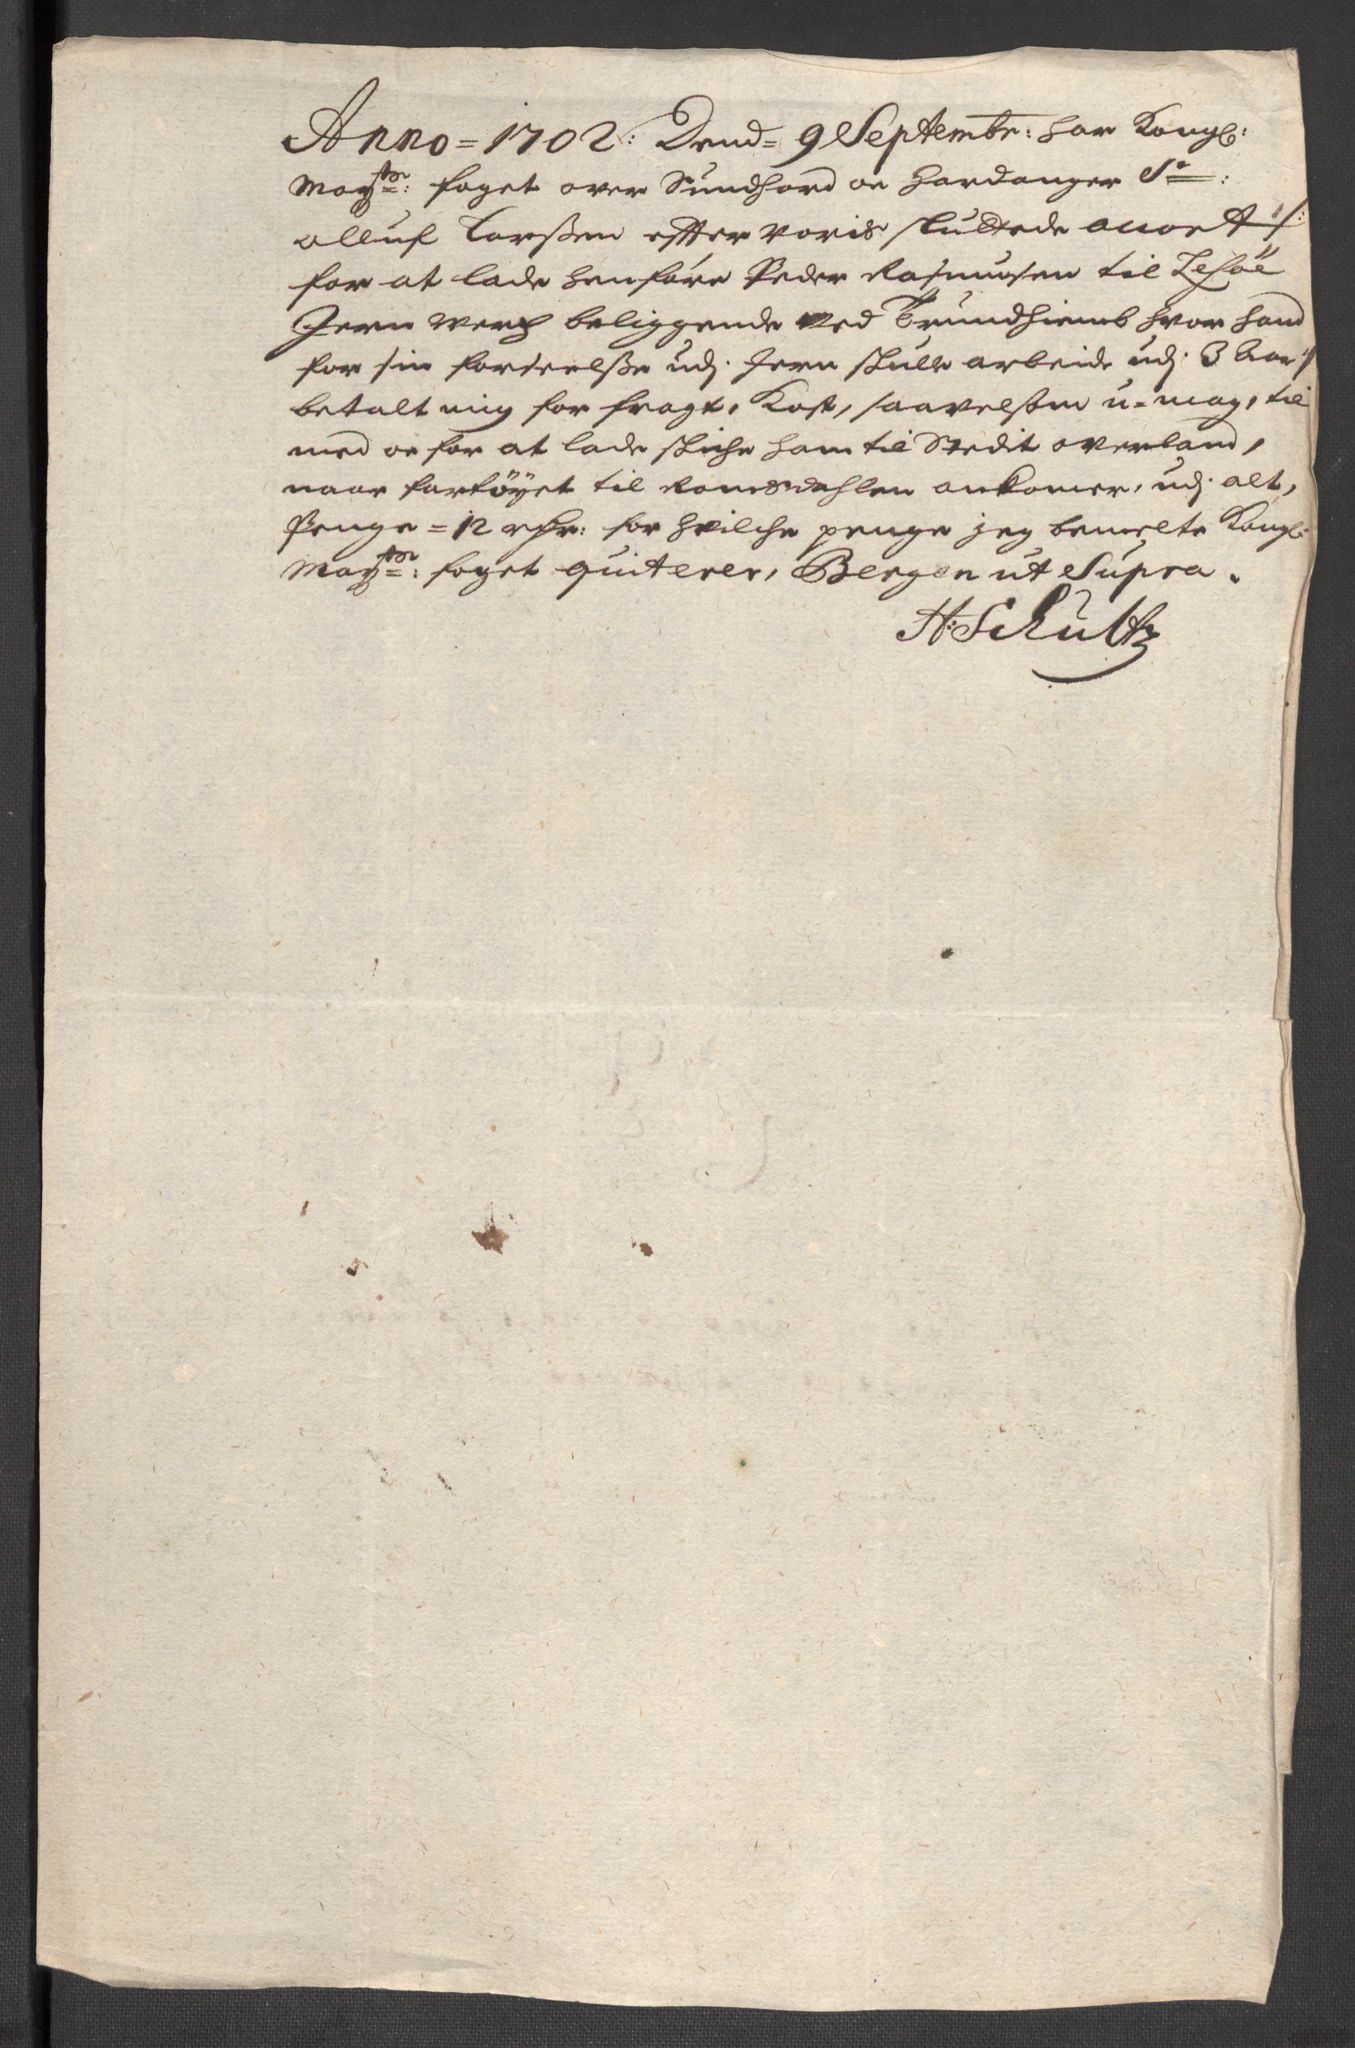 Anno = 1702: Dend = 9 Septembr: har Kongl:
May:ts: foget over Sundhord oc Hardanger Sr:
olluf Larßen effter voris sluttede accort
for at lade henføre Peder Rasmusen til
Jern Werch beliggende ved Trundhiemb hvor hand
for sin forseelße udj Jern skulle arbeide udj 3 Aar
betalt mig for fragt, Kost, saavelsom u-mag, til
med oc for at lade skiche ham til Stedit overland,
naar fartøyet til Romsdahlen ankomer, udj alt,
Penge = 12 rdr: for hvilche penge jeg bemelte Kongl:
May:ts: foget quiterer, Bergen ut Supra.
H: Schultz